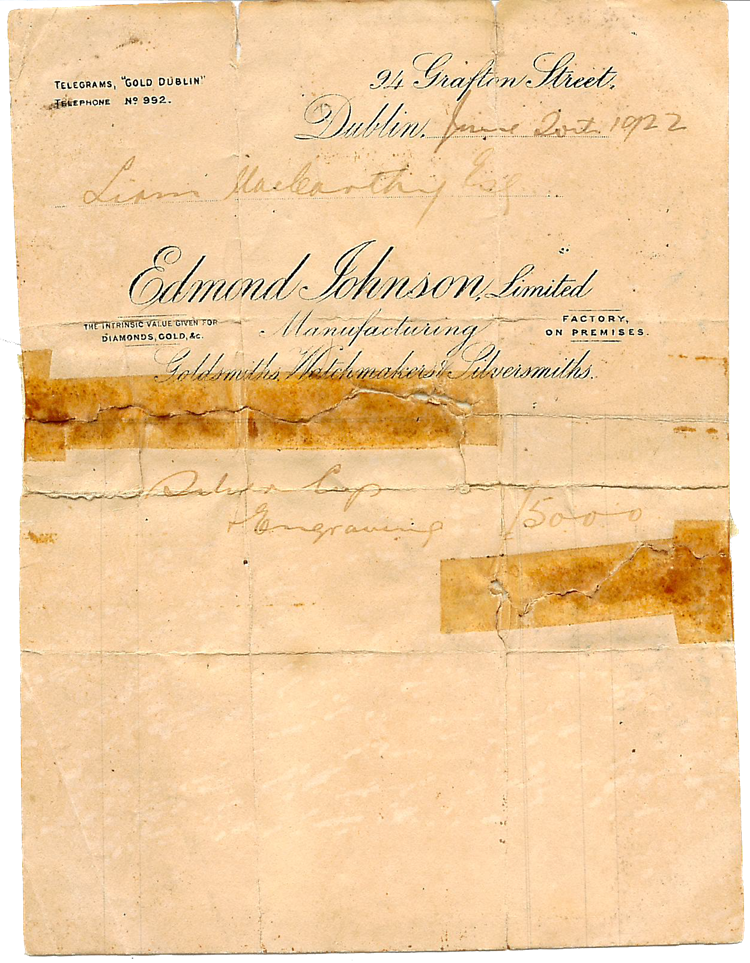 TELEGRAMS, "GOLD DUBLIN"
TELEPHONE Nº 992.
94 Grafton Street,
Dublin, June 20th 1922
Liam MacCarthy Esq
Edmond Johnson, Limited
THE INTRINSIC VALUE GIVEN FOR
DIAMONDS, GOLD, &c.
Manufacturing
FACTORY,
ON PREMISES.
Goldsmiths, Watchmakers & Silversmiths.
Silver Cup
+ Engraving 50 0 0